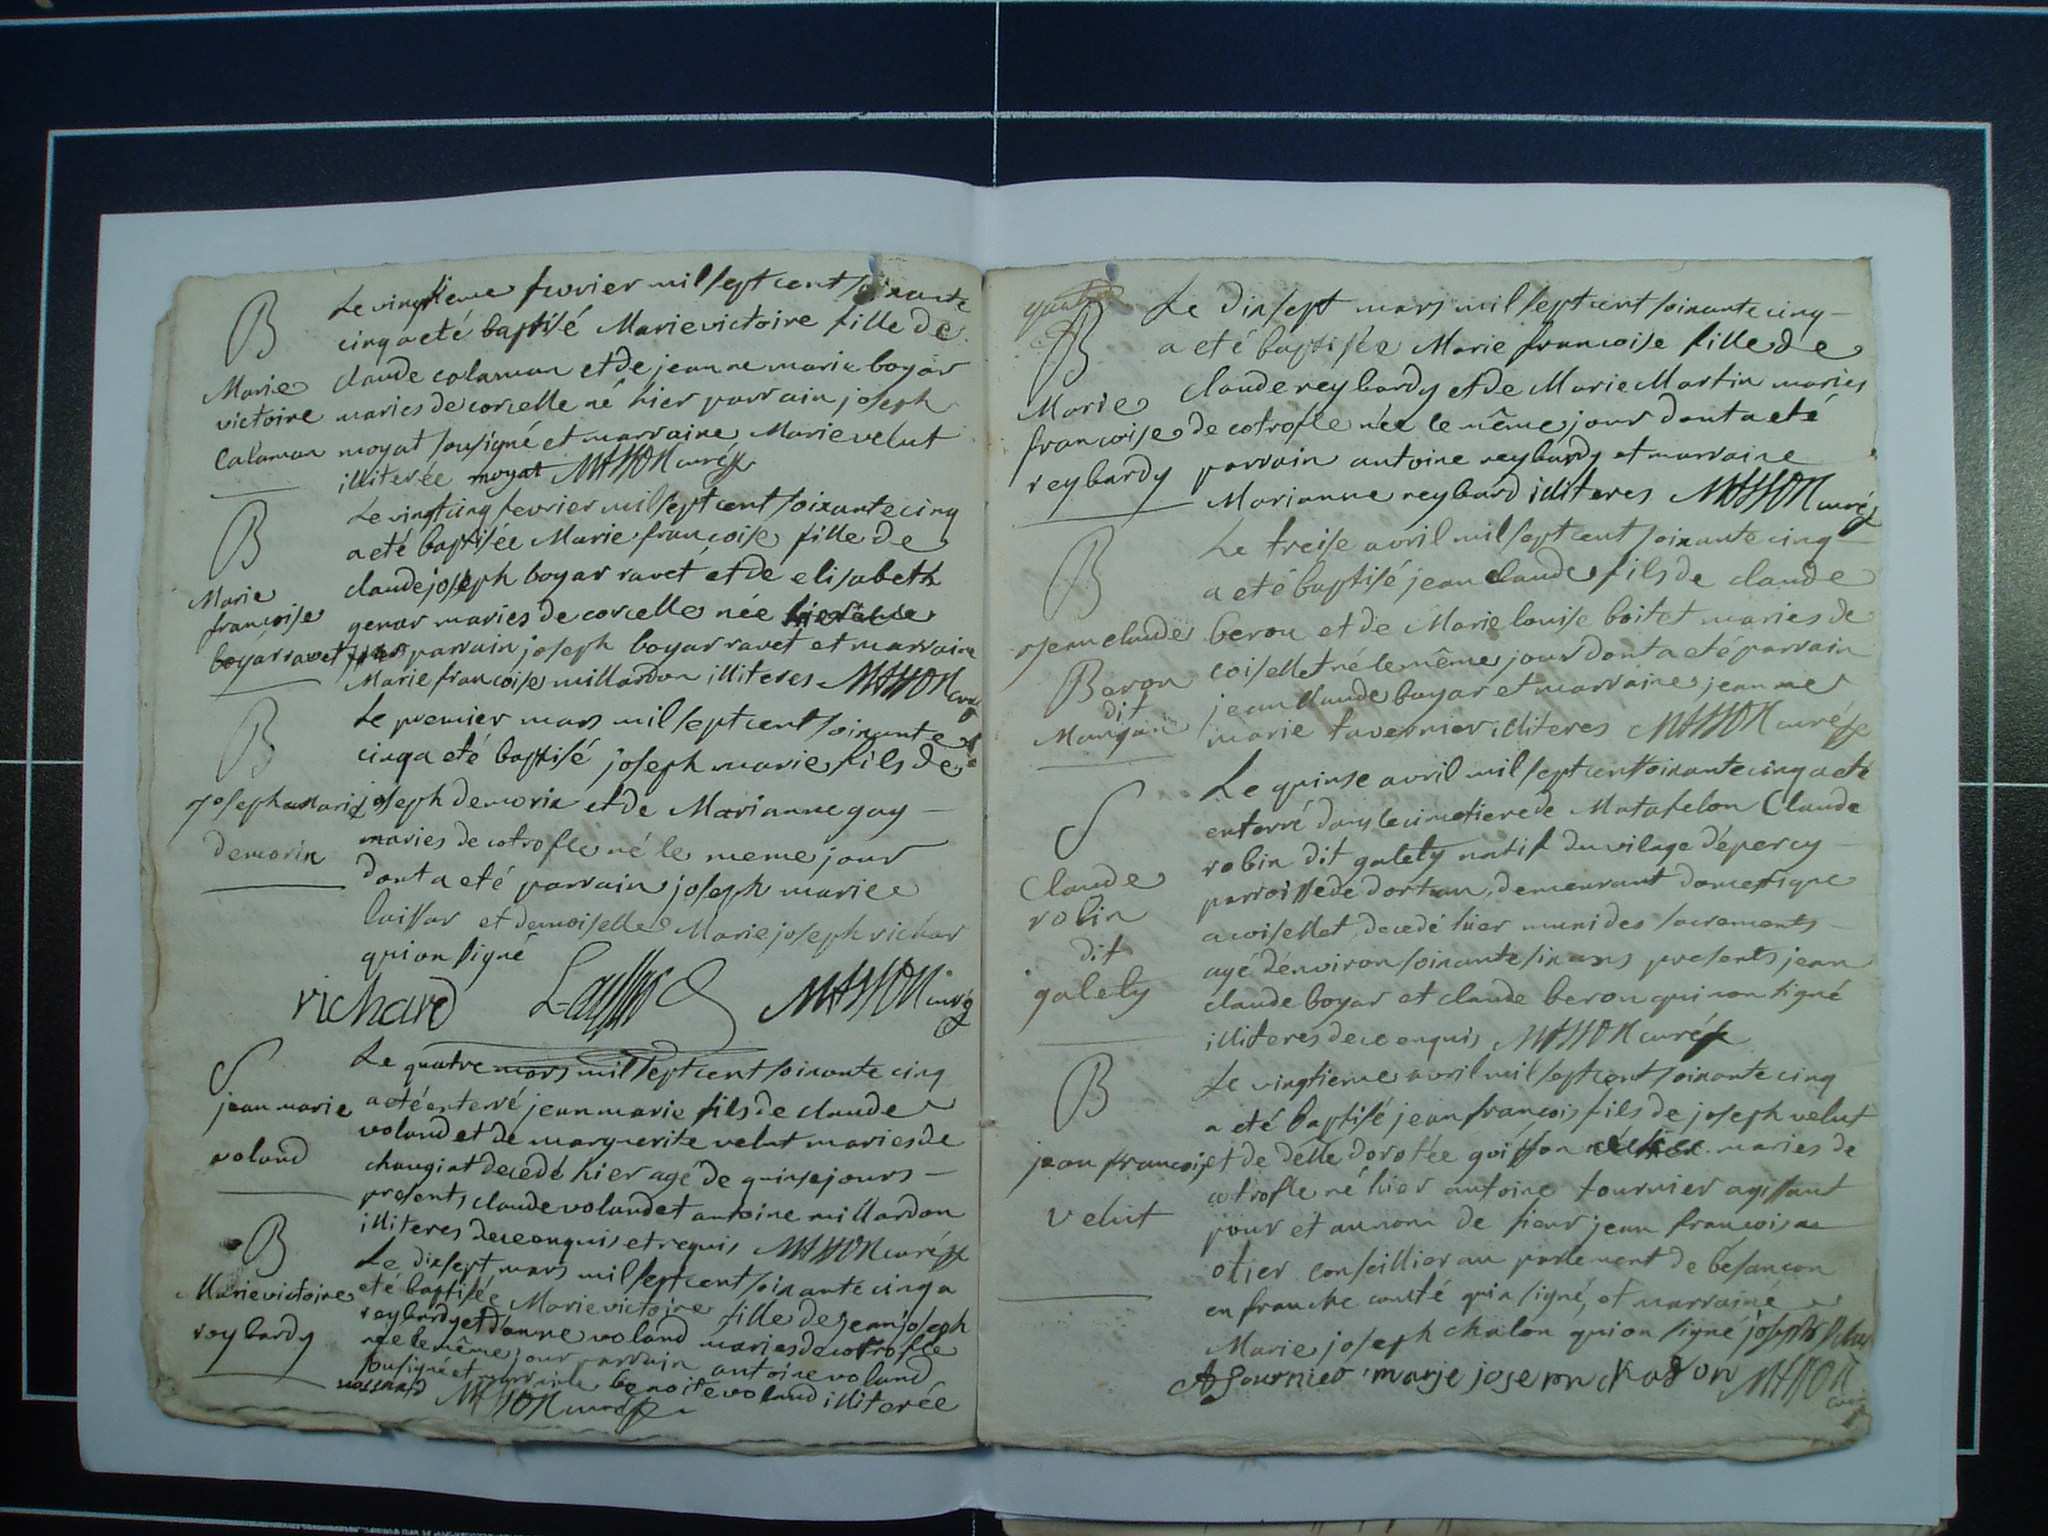 B
Marie
victoire
Calaman
Le vingtieme fevrier mil sept cent soixante
cinq a eté baptisé Marie victoire fille de
claude calaman et de jeanne marie bogar
maries de corcelle né hier parrain joseph
moyat sousigné et marraine Marie velut
illiterée moyat MASSON curé
B
Marie
françoise
bogar ravet
Le vingt cinq fevrier mil sept cent soixante cinq
a eté baptisée Marie françoise fille de
claude joseph bogar ravet et de elisabeth
genar maries de corcelle née
parrain joseph bogar ravet et marraine
Marie françoise millardon illiteres MASSON curé
B
Joseph marie
demorin
Le premier mars mil sept cent soixante
cinq a eté baptisé joseph marie fils de
joseph demorin et de Marianne gay
maries de cotrofle né le meme jour
dont a eté parrain joseph marie
laissar et demoiselle Marie joseph richar
qui on signé
richard MASSON curé
S
jean marie
voland
Le quatre mars mil sept cent soixante cinq
a eté enterré jean marie fils de claude
voland et de marguerite velut maries de
changiat decedé hier agé de quinse jours
presents claude voland et antoine millardon
illiteres de ce enquis et requis MASSON curé
B
Marie victoire
reybardy
Le dixsept mars mil sept cent soixante cinq a
eté baptisée Marie victoire fille de jean joseph
reybardy et d'anne voland maries de cotrofle
née le même jour parrain antoine voland
sousigné et marraine benoite voland illiterée
MASSON curé
B
Marie
françoise
reybardy
Le dixsept mars mil sept cent soixante cinq
a eté baptisée Marie françoise fille de
claude reybardy et de Marie Martin maries
de cotrofle née le même jour dont a eté
parrain antoine reybardy et marraine
Marianne reybard illiteres MASSON curé
B
Jean claude
Beron
dit
Mangin
Le treise avril mil sept cent soixante cinq
a eté baptisé jean claude fils de claude
berou et de Marie louise boitet maries de
coiselet né le même jour dont a eté parrain
jean claude bogar et marraine jeanne
marie tavernier illiteres MASSON curé
S
Claude
robin
dit
galety
Le quinse avril mil sept cent soixante cinq a eté
enterré dans le cimetiere de Matafelon Claude
robin dit galety natif du vilage d'épercy
parroisse de dortan, demeurant domestique
a coiselet, decedé hier muni des sacrements
agé d'environ soixante six ans presents jean
claude bogar et claude berou qui non signé
illiteres de ce enquis MASSON curé
B
jean françois
velut
Le vingtieme avril mil sept cent soixante cinq
a eté baptisé jean françois fils de joseph velut
et de delle dorotée goiffon maries de
cotrofle né hier antoine tournier agissant
pour et au nom de sieur jean françois
olier conseillier au parlement de besançon
en franche comté qui a signé, et marraine
Marie joseph chalon qui on signé joseph velut
A fournier marje joseph chalon MASSON
curé